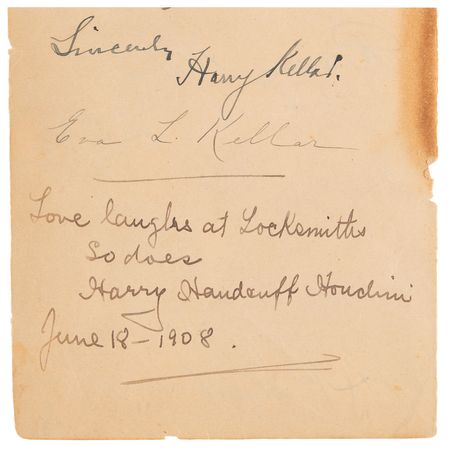 Sincerely
Harry Kellar.
Eva L. Kellar
Love laughs at Locksmiths
So does
Harry Handcuff Houdini
June 18 - 1908.